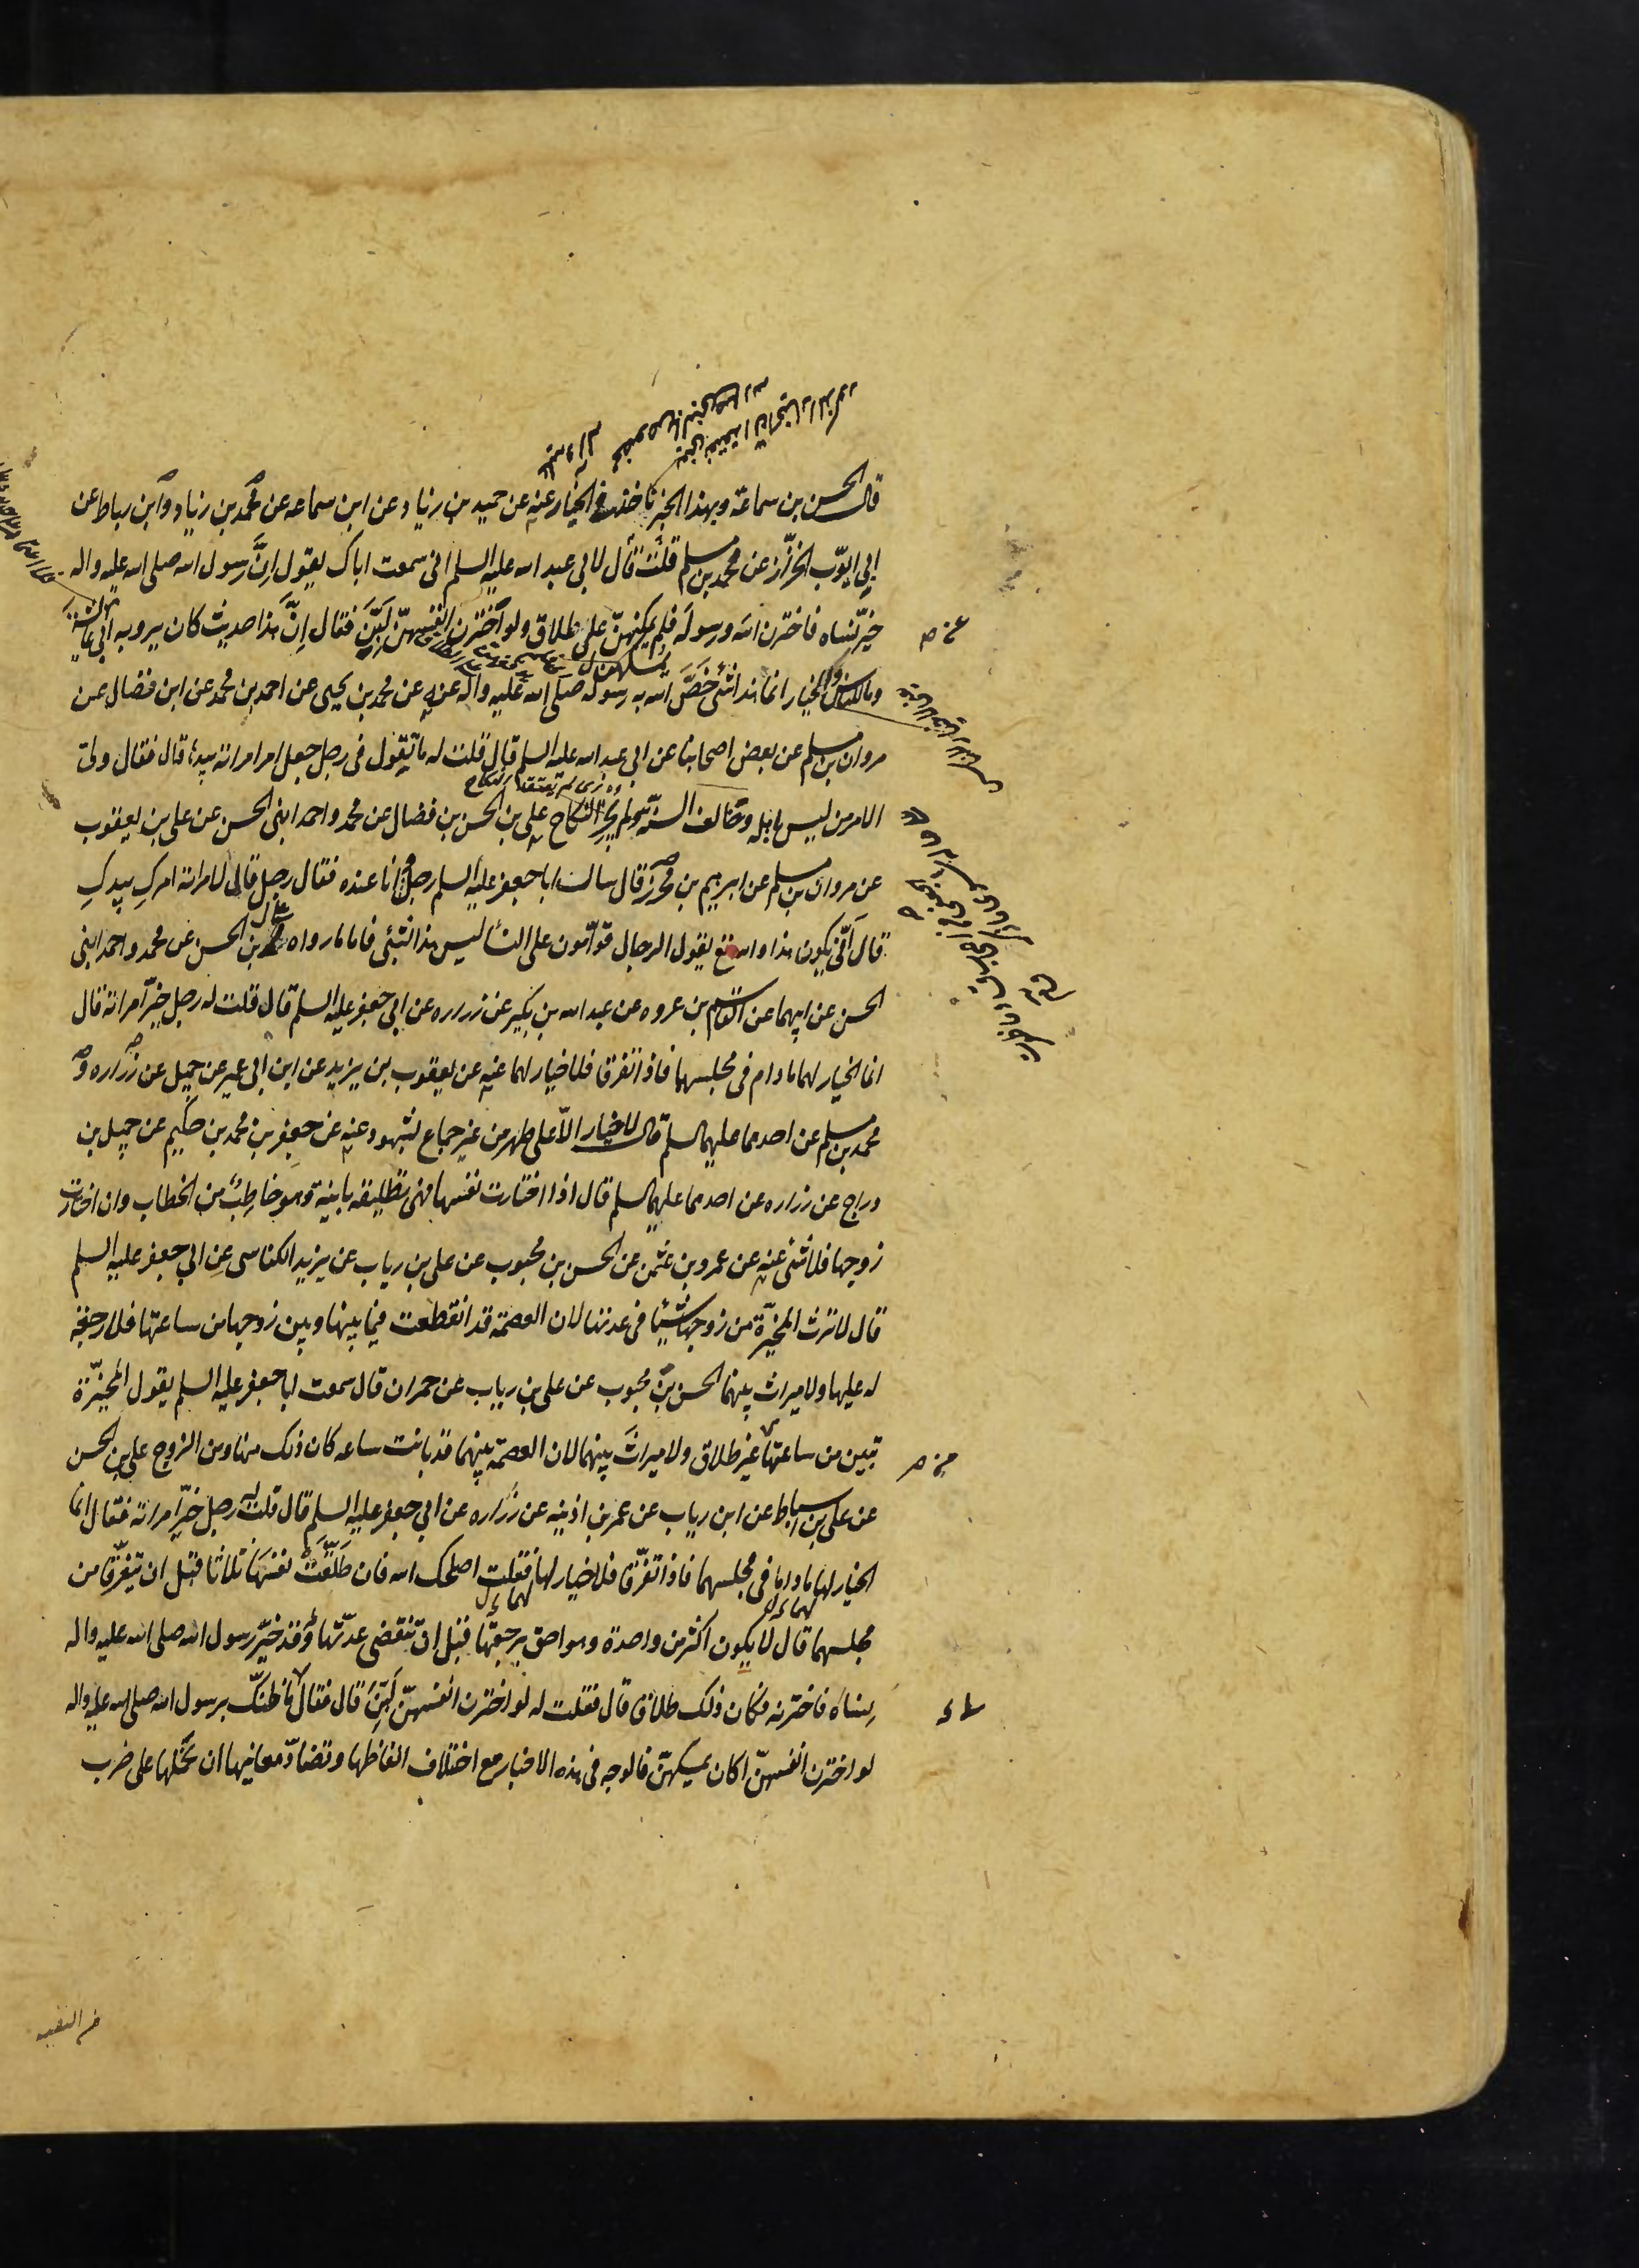 قال الحسن بن سماعة وبهذا الخبر ناخذ في الخيار عنه عن حميد بن زياد عن ابن سماعه عن محمد بن زياد وابن رباط عن
ابي ايوب الخزاز عن محمد بن مسلم قال قلت لابي عبد الله عليه السلم اني سمعت اباك يقول ان رسول الله صلى الله عليه واله
خيّر نساه فاخترن الله ورسوله فلم يمسكهن على طلاق ولو اخترن انفسهنّ لَبِنَّ فقال اِنَّ هذا حديث كان يرويه ابي عن عايشة
وما للناس والخيار انما هذا شئ خَصَّ الله به رسوله صلى الله عليه واله عنه عن محمد بن يحيى عن احمد بن محمد عن ابن فضال عن
مروان بن مسلم عن بعض اصحابنا عن ابي عبد الله عليه السلم قال قلت له ما تقول في رجل جعل امر امراته بيدها قال فقال ولّى
الامر من ليس باهله وخالف السنّة ولم يجز النكاح علي بن الحسن بن فضال عن محمد واحمد ابني الحسن عن علي بن يعقوب
عن مروان بن مسلم عن ابرهيم بن محرز قال سالت ابا جعفر عليه السلم رجل وانا عنده فقال رجل قال لامراته امركِ بيدكِ
قال اَنّى يكون هذا والله تع يقول الرجال قوّامون على النسا ليس هذا بشئ فاما ما رواه علي بن الحسن عن محمد واحمد ابني
الحسن عن ابيهما عن القاسم بن عروه عن عبد الله بن بكير عن زراره عن ابي جعفر عليه السلم قال قلت له رجل خيّر امراته قال
انما الخيار لهما ما داما في مجلسهما فاذا تفرقا فلا خيار لهما عنه عن يعقوب بن يزيد عن ابن ابي عمير عن جميل عن زراره و
محمد بن مسلم عن احدهما عليهما السلم قال لا خيار الّا على طهر من غير جماع بشهود عنه عن جعفر بن محمد بن حكيم عن جميل بن
دراج عن زراره عن احدهما عليهما السلم قال اذا اختارت نفسها فهي تطليقه باينة وهو خاطِبٌ من الخطاب وان اختارت
زوجها فلا شئ عنه عن عمرو بن عثمن عن الحسن بن محبوب عن علي بن رياب عن يزيد الكناسي عن ابي جعفر عليه السلم
قال لا ترث المخيّرة من زوجها شيئا في عدتها لان العصمة قد انقطعت فيما بينها وبين زوجها من ساعتها فلا رجعة
له عليها ولا ميراث بينهما الحسن بن محبوب عن علي بن رياب عن حمران قال سمعت ابا جعفر عليه السلم يقول المخيّرة
تبين من ساعتها من غير طلاق ولا ميراث بينهما لان العصمة بينهما قد بانت ساعه كان ذلك منها ومن الزوج علي بن الحسن
عن علي بن اسباط عن ابن رياب عن عمر بن اذينه عن زراره عن ابي جعفر عليه السلم قال قلت له رجل خيّر امراته فقال انما
الخيار لها ما داما في مجلسهما فاذا تفرّقا فلا خيار لها فقلت اصلحك الله فان طَلّقَتْ نفسَها ثلاثا قبل ان يتفرّقا من
مجلسهما قال لا يكون اكثر من واحدة وهو احق برجعتها قبل ان تنقضي عدّتها وقد خيّر رسول الله صلى الله عليه واله
نساءَه فاخترنه فكان ذلك طلاقا قال فقلت له لو اخترن انفسهنّ لَبِنَّ قال فقال ما ظنّك برسول الله صلى الله عليه واله
لو اخترن انفسهنّ اكان يمسكهنّ فالوجه في هذه الاخبار مع اختلاف الفاظها وتضادّ معانيها ان نحملها على ضرب
من التقيه